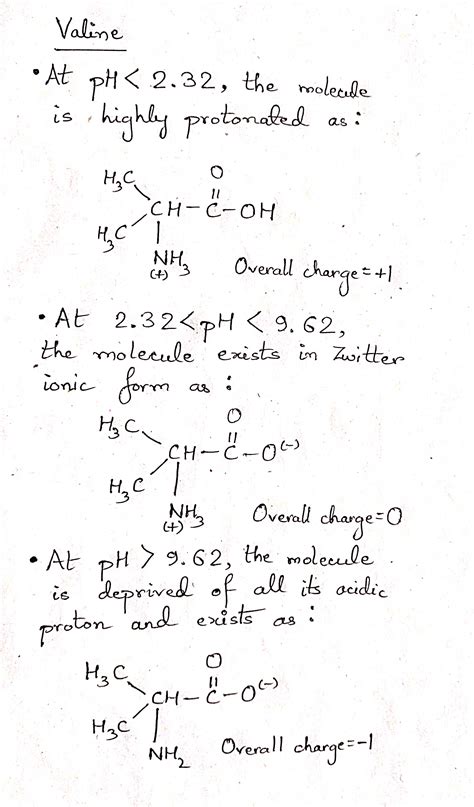 Valine
• At pH < 2.32, the molecule
is highly protonated as:
O
H3C
CH–C–OH
H3C
NH3
(+)
Overall charge=+1
• At 2.32<pH < 9.62,
the molecule exists in Zwitter
ionic form as :
O
H3C
CH–C–O(-)
H3C
NH3
(+)
Overall charge=0
• At pH > 9.62, the molecule
is deprived of all its acidic
proton and exists as :
O
H3C
CH–C–O(-)
H3C
NH2
Overall charge=-1